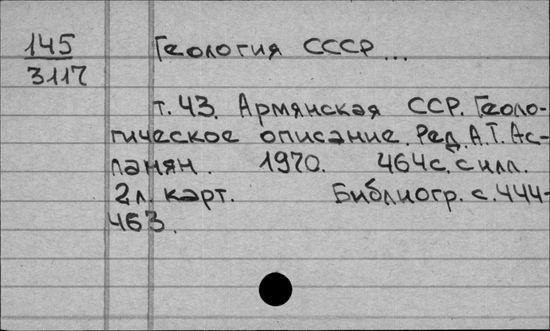 145
3117
Геология СССР...
т. 43. Армянская ССР. Геоло-
гическое описание. Ред. А.Т. Ас-
ланян. 1970. 464с. с илл.
2л. карт. Библиогр. с. 444-
463.